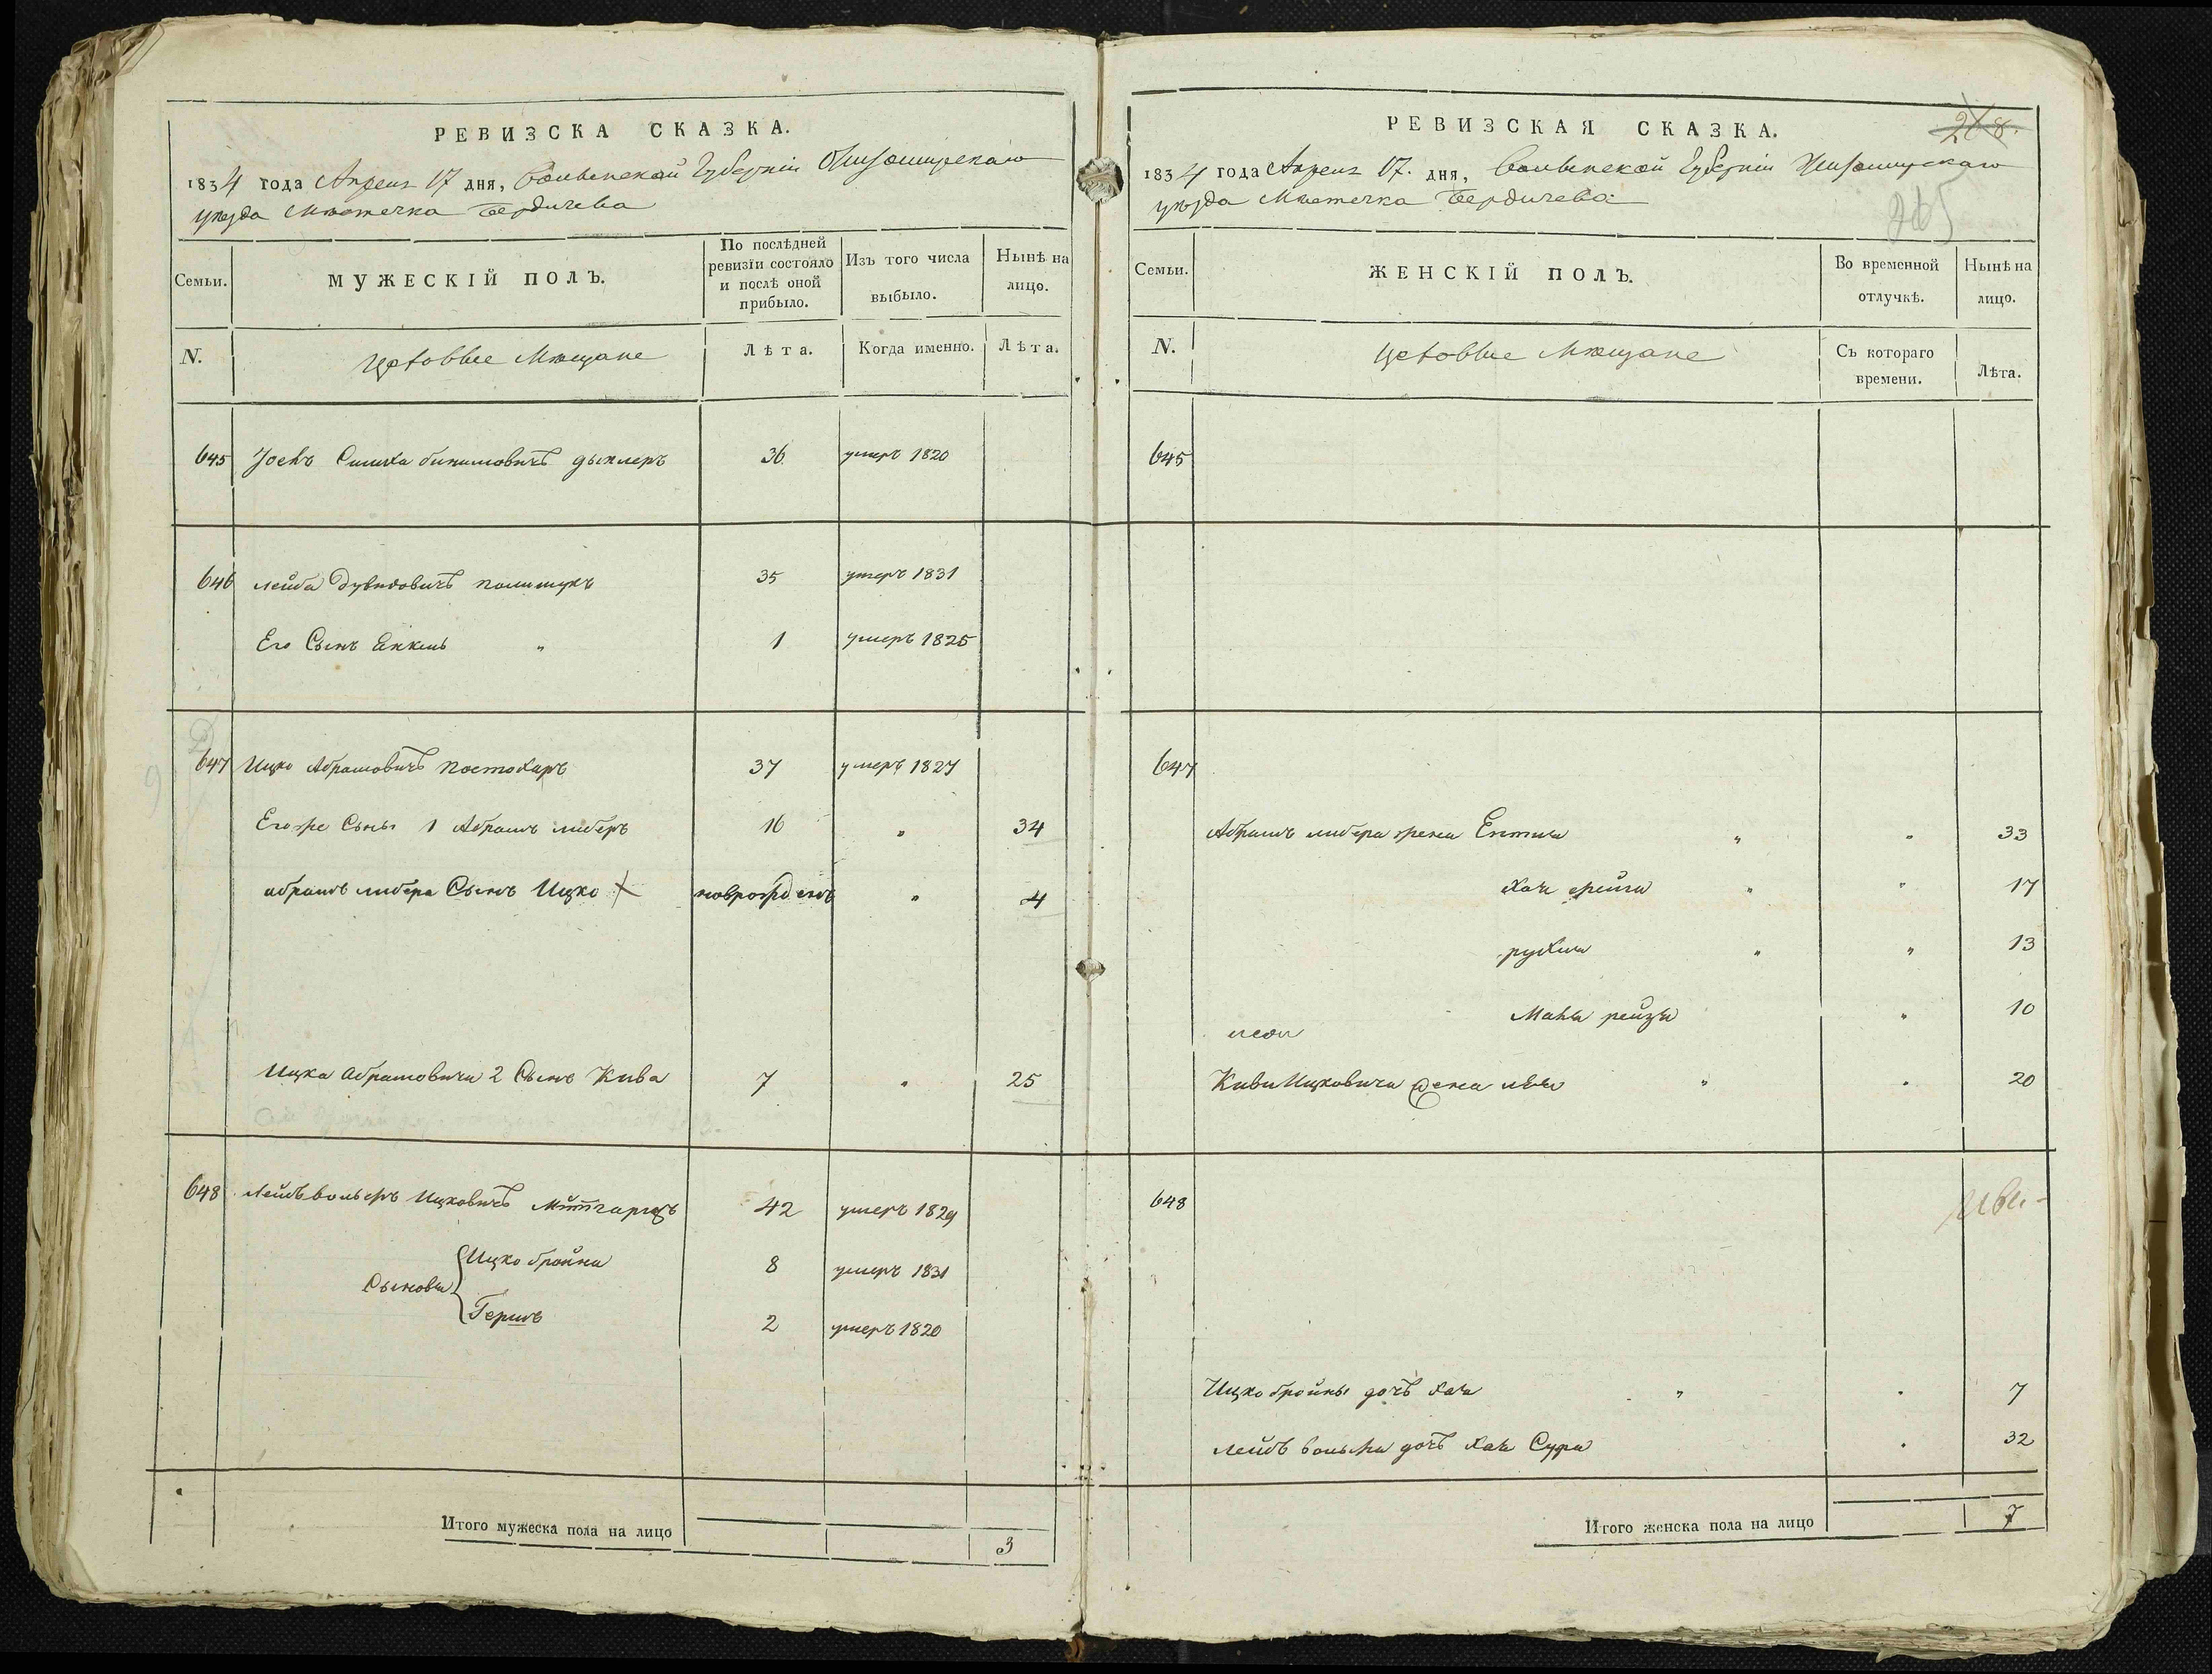 РЕВИЗСКА СКАЗКА.
1834 года Апреля 17 дня, Волынской Губерніи Житомирскаго
уѣзда Мѣстечка Бердичева
Семьи.
МУЖЕСКІЙ ПОЛЪ.
По послѣдней ревизіи состояло и послѣ оной прибыло.
Изъ того числа выбыло.
Нынѣ на лицо.
N.
Цеховые Мѣщане
Лѣта.
Когда именно.
Лѣта.
645 Іосъ Симха дыхлеръ 36 умеръ 1820
646 Лейба Дувидовичъ полищукъ 35 умеръ 1831
Его Сынъ Янкель " 1 умеръ 1825
647 Ицко Абрамовичъ постохаръ 37 умеръ 1827
Его же Сынъ 1 Абрамъ либеръ 16 " 34
абрамъ либера Сынъ Ицко новрожденъ " 4
Ицка Абрамовича 2 Сынъ Кива 7 " 25
648 Лейбъ вольфъ Ицковичъ 42 умеръ 1829
Сыновья
Ицко бройна 8 умеръ 1831
Гершъ 2 умеръ 1820
Итого мужеска пола на лицо 3
РЕВИЗСКАЯ СКАЗКА.
1834 года Апреля 17. дня, Волынской Губерніи Житомирскаго
уѣзда Мѣстечка Бердичева
Семьи.
ЖЕНСКІЙ ПОЛЪ.
Во временной отлучкѣ.
Нынѣ на лицо.
N.
Цеховые Мѣщане
Съ котораго времени.
Лѣта.
645
647
Абрамъ либера жена Ентля " " 33
хая фейга " " 17
рухля " " 13
Маня рейзя " 10
Киви Ицковича жена " " 20
648
Ицко бройны дочь хая " " 7
лейбъ вольфа дочь хая Сура " 32
Итого женска пола на лицо 7